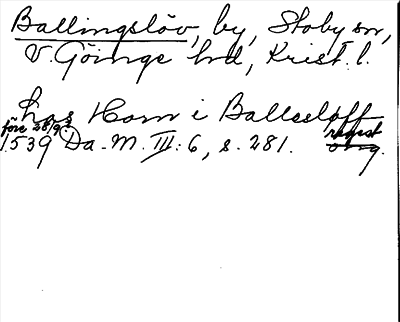 Ballingslöv, by, Stoby sn,
V. Göinge hd, Krist. l.
hos Ham i Ballsløff
före 28/9?
1539 Da. M. III: 6, s. 281. regist
orig.